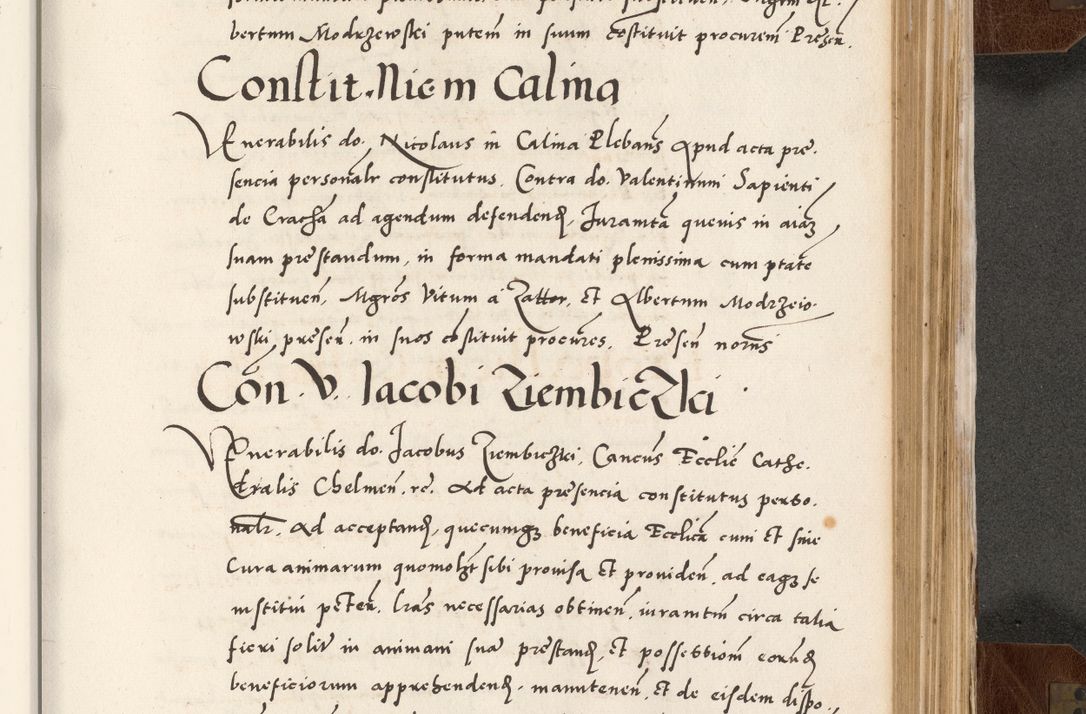 bertum Modrzewski putem in suum costituit procurem Presen.
Constit. Nicm Calina
Venerabilis do. Nicolaus in Calina Plebans Apud acta pre.
sencia personalr constitutus, Contra do. Valentinum Sapienti
de Cracha ad agendum defendend, Juramta quevis in aiaz
suam prestandum, in forma mandati plenissima cum ptate
substituen, Mgros Vitum a Zator, et Albertum Modrzeio.
wski presen. in suos costituit procures. Presen norns
Con. V. Iacobi Ziembiczki
Venerabilis do. Jacobus Ziembiczki, Cancus Ecclie Cathe.
dralis Chelmen. rc. Ad acta presencia constitutus perso.
nalr, Ad acceptand, quecumqz beneficia Ecclica cum et sine
Cura animarum quomolzt sibi provisa et providen, ad eaqz se
institui peten. lras necessarias obtinen, iuramtm circa talia
fieri solitr in animam sua prestand, et possessiom eorund
beneficiorum apprehendend. manutenen, et de eisdem dispo.